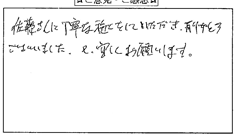 ご意見・ご感想
佐藤さんに丁寧な施工をして頂き、有り難う
ございました。又、宜しくお願いします。